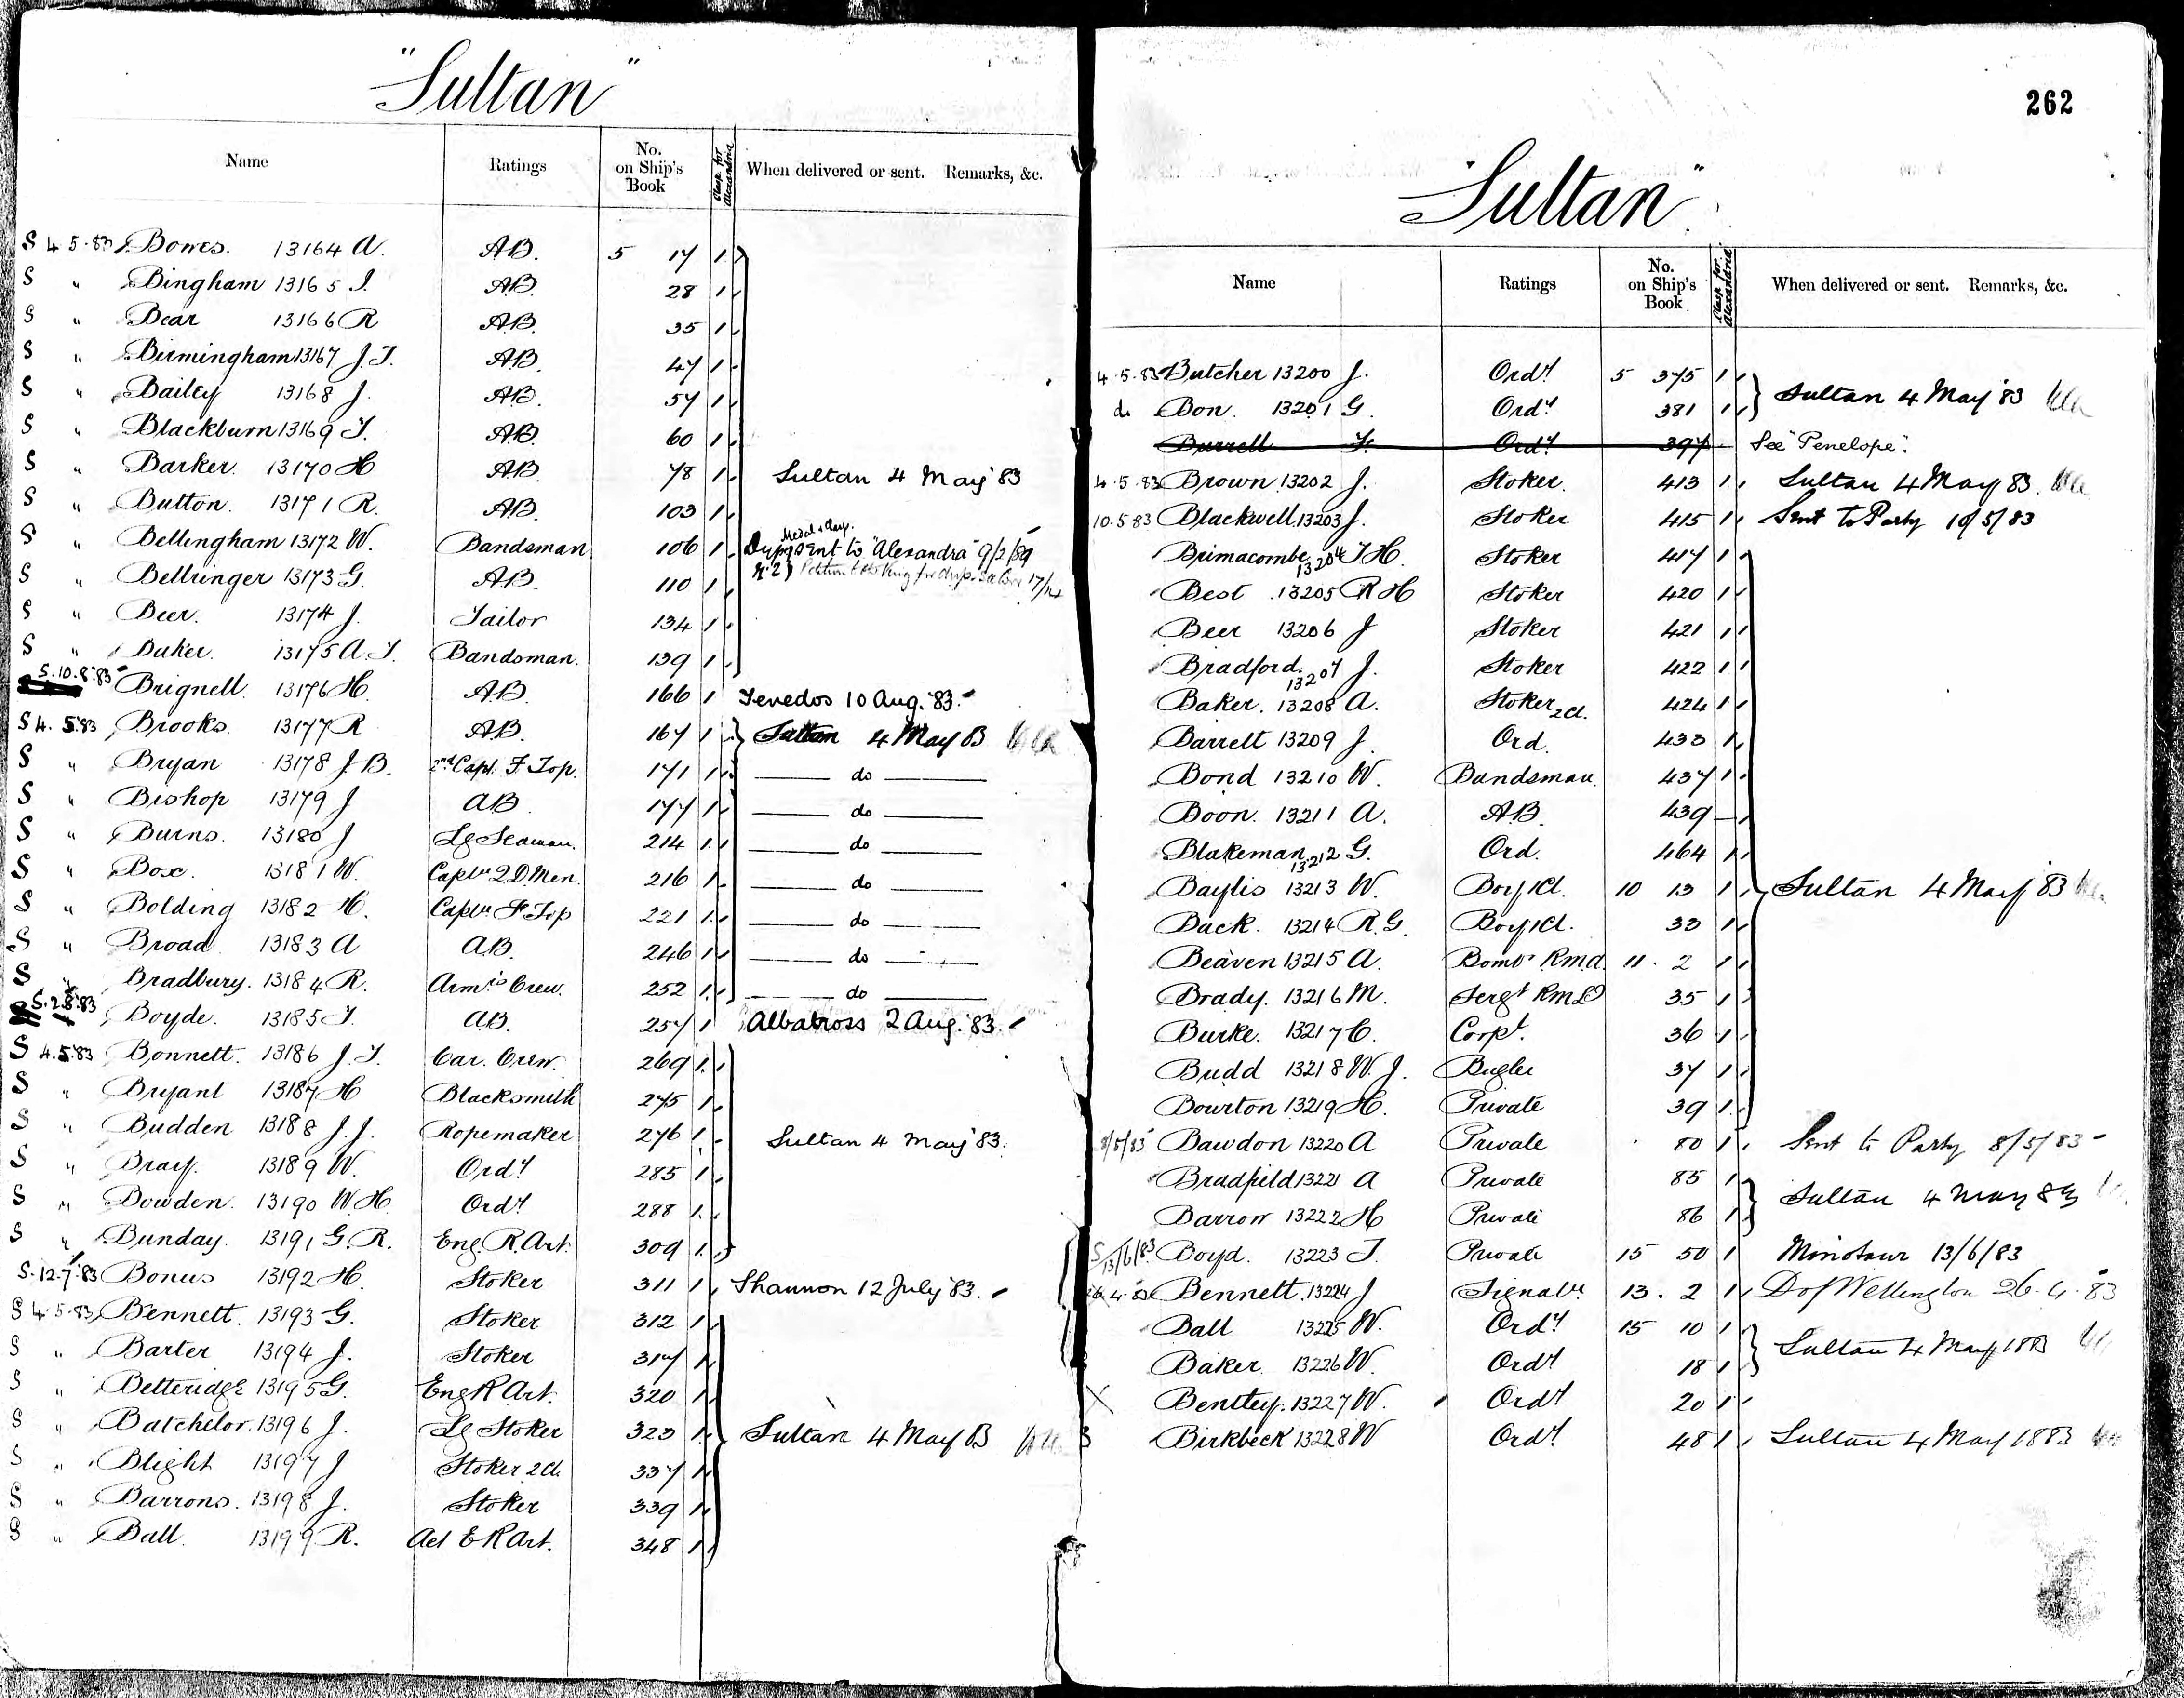 "Sultan"
Name Ratings No. on Ship's Book Clasp for Alexandria When delivered or sent. Remarks, &c.
S 4.5.83 Bowes. 13164 A. A.B. 5 17 1
S " Bingham 13165 J. A.B. 28 1
S " Bear 13166 R A.B. 35 1
S " Birmingham 13167 J.T. A.B. 47 1
S " Bailey 13168 J. A.B. 57 1
S " Blackburn 13169 T. A.B. 60 1
S " Barker. 13170 H A.B. 78 1 Sultan 4 May '83
S " Button. 13171 R. A.B. 103 1
S " Bellingham 13172 W. Bandsman 106 1 Medal & clasp. sent to "Alexandra" 9/2/89
S " Bellringer 13173 G. A.B. 110 1
S " Beer. 13174 J. Tailor 134 1
S " Baker. 13175 A.T. Bandsman. 139 1
S. 10.8.83 Brignell. 13176 H. A.B. 166 1 Tenedos 10 Aug. '83.
S 4. 5.83 Brooks. 13177 R A.B. 167 1 Sultan 4 May 83
S " Bryan 13178 J.B. 2nd Capt. F Top. 171 1 do
S " Bishop 13179 J A.B. 177 1 do
S " Burns. 13180 J Lg Seaman. 214 1 do
S " Box. 13181 W. Captn 2.D. Men. 216 1 do
S " Bolding 13182 H. Captn F Top 221 1 do
S " Broad 13183 A A.B. 246 1 do
S " Bradbury. 13184 R. Armrs Crew. 252 1 do
S. 2.8.83 Boyde. 13185 T. A.B. 257 1 Albatross 2 Aug. '83.
S 4.5.83 Bonnett. 13186 J.T. Car. Crew. 269 1
S " Bryant 13187 H Blacksmith 275 1
S " Budden 13188 J.J. Ropemaker 276 1 Sultan 4 May '83.
S " Bray. 13189 W. Ordy 285 1
S " Bowden. 13190 W.H. Ordy 288 1
S " Bunday. 13191 G.R. Eng. R. Art. 309 1
S. 12.7.83 Bonus 13192 H. Stoker 311 1 Shannon 12 July '83.
S 4.5.83 Bennett. 13193 G. Stoker 312 1
S " Barter 13194 J. Stoker 317 1
S " Betteridge 13195 G. Eng R Art. 320 1
S " Batchelor. 13196 J. Lg Stoker 323 1 Sultan 4 May 83
S " Blight 13197 J Stoker 2 Cl. 337 1
S " Barrons. 13198 J. Stoker 339 1
S " Ball. 13199 R. Act E R Art. 348 1
262
"Sultan"
Name Ratings No. on Ship's Book Clasp for Alexandria When delivered or sent. Remarks, &c.
4.5.83 Butcher 13200 J. Ordy 5 375 1
do Bon. 13201 G. Ordy 381 1 Sultan 4 May '83
Burrell Ordy 397 See "Penelope".
4.5.83 Brown 13202 J. Stoker. 413 1 Sultan 4 May 83.
10.5 83 Blackwell 13203 J. Stoker 415 1 Sent to Party 10/5/83
Brimacombe 13204 T.H. Stoker 417 1
Best 13205 R H Stoker 420 1
Beer 13206 J Stoker 421 1
Bradford. 13207 J. Stoker 422 1
Baker. 13208 A. Stoker 2 Cl. 424 1
Barrett 13209 J. Ord. 433 1
Bond 13210 W. Bandsman. 437 1
Boon. 13211 A. A.B. 439 —
Blakeman 13212 G. Ord. 464 1
Baylis 13213 W. Boy 1 Cl. 10 13 1 Sultan 4 May '83
Back. 13214 R.G. Boy 1 Cl. 33 1
Beaven 13215 A. Bombr R.M.A. 11. 2 1
Brady. 13216 M. Sergt R.M.L.I 35 1
Burke. 13217 C. Corpl. 36 1
Budd 13218 W.J. Bugler 37 1
Bourton 13219 H. Private 39 1
8/5/83 Bawdon 13220 A Private 80 1 Sent to Party 8/5/83
Bradfield 13221 A Private 85 1
Barrow 13222 H Private 86 1 Sultan 4 May 83
S 13/6/83 Boyd. 13223 T. Private 15 50 1 Minotaur 13/6/83
26.4.83 Bennett. 13224 J Signalm 13. 2 1 D of Wellington 26.4.83
Ball 13225 W. Ordy 15 10 1
Baker. 13226 W. Ordy 18 1 Sultan 4 May 1883
X Bentley. 13227 W. Ordy 20 1
Birkbeck 13228 W Ordy 48 1 Sultan 4 May 1883